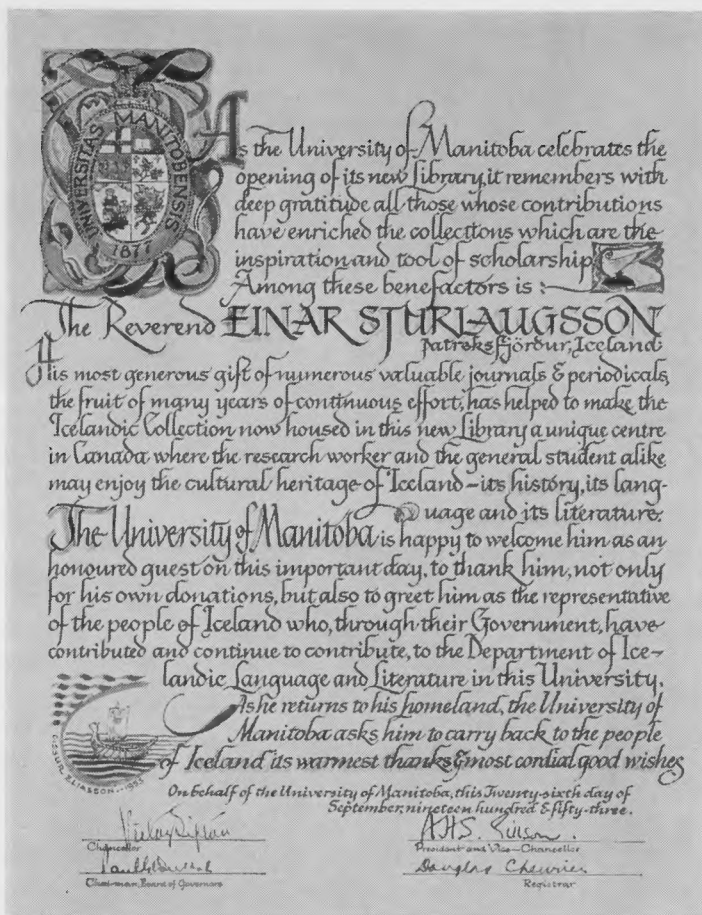 UNIVERSITAS MANITOBENSIS
1877
As the University of Manitoba celebrates the
opening of its new Library, it remembers with
deep gratitude all those whose contributions
have enriched the collections which are the
inspiration and tool of scholarship
Among these benefactors is :
The Reverend EINAR STURLAUGSSON
Patreksfjördur, Iceland.
His most generous gift of numerous valuable journals & periodicals,
the fruit of many years of continuous effort, has helped to make the
Icelandic Collection now housed in this new Library a unique centre
in Canada where the research worker and the general student alike
may enjoy the cultural heritage of Iceland – its history, its lang-
uage and its literature.
The University of Manitoba is happy to welcome him as an
honoured guest on this important day, to thank him, not only
for his own donations, but also to greet him as the representative
of the people of Iceland who, through their Government, have
contributed and continue to contribute, to the Department of Ice-
landic Language and Literature in this University.
As he returns to his homeland, the University of
Manitoba asks him to carry back to the people
of Iceland its warmest thanks & most cordial good wishes
On behalf of the University of Manitoba, this Twenty-sixth day of
September, nineteen hundred & fifty-three.
Chancellor
A.H.S.
President and Vice-Chancellor
Chairman, Board of Governors
Douglas Chevrier
Registrar